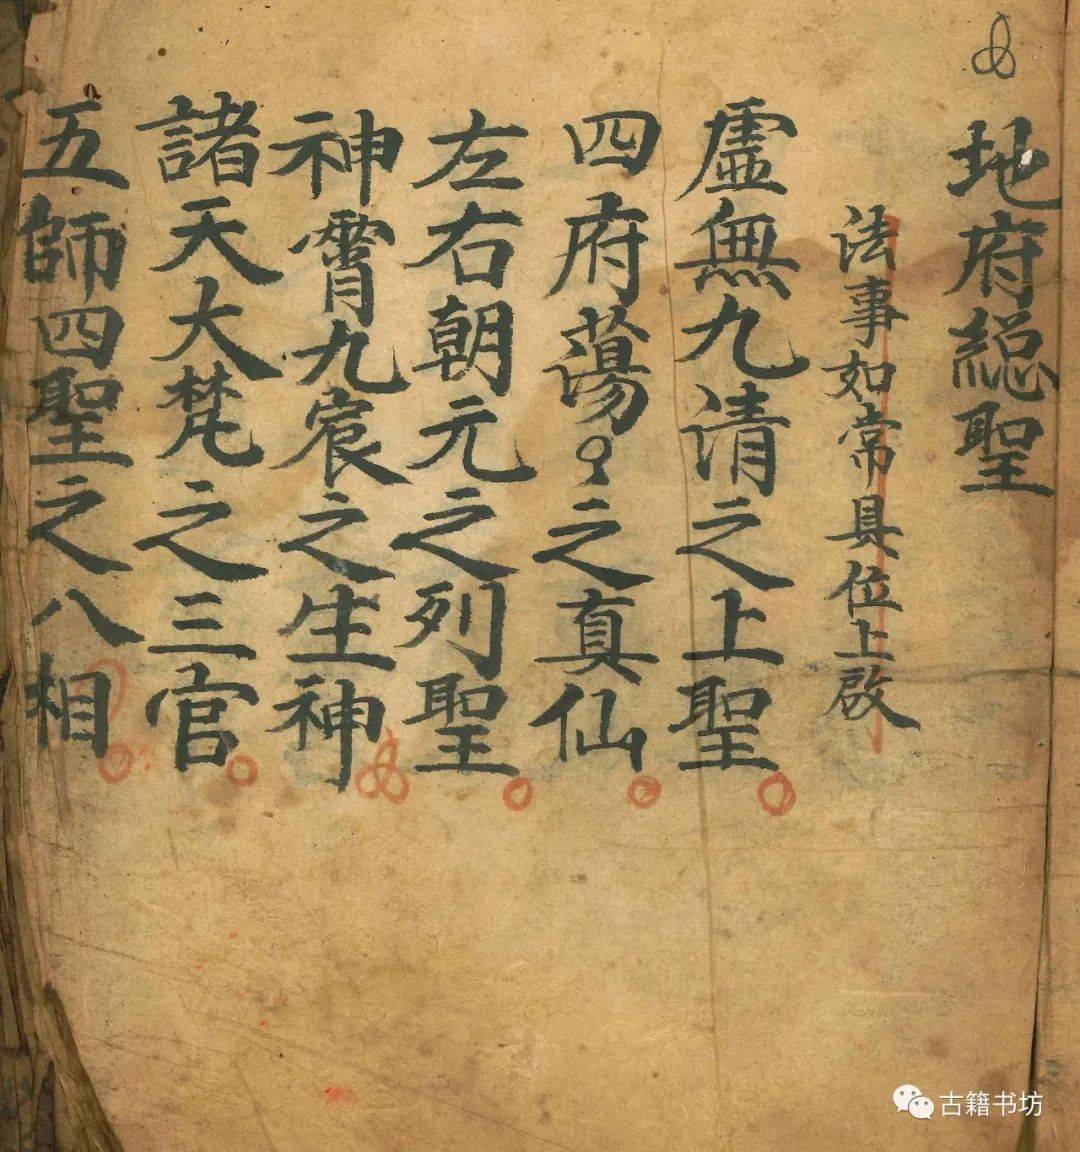 地府総聖
法事如常具位上啟
虛無九清之上聖
四府蕩〻之真仙
左右朝元之列聖
神霄九宸之生神
諸天大梵之三官
五師四聖之八相
古籍书坊